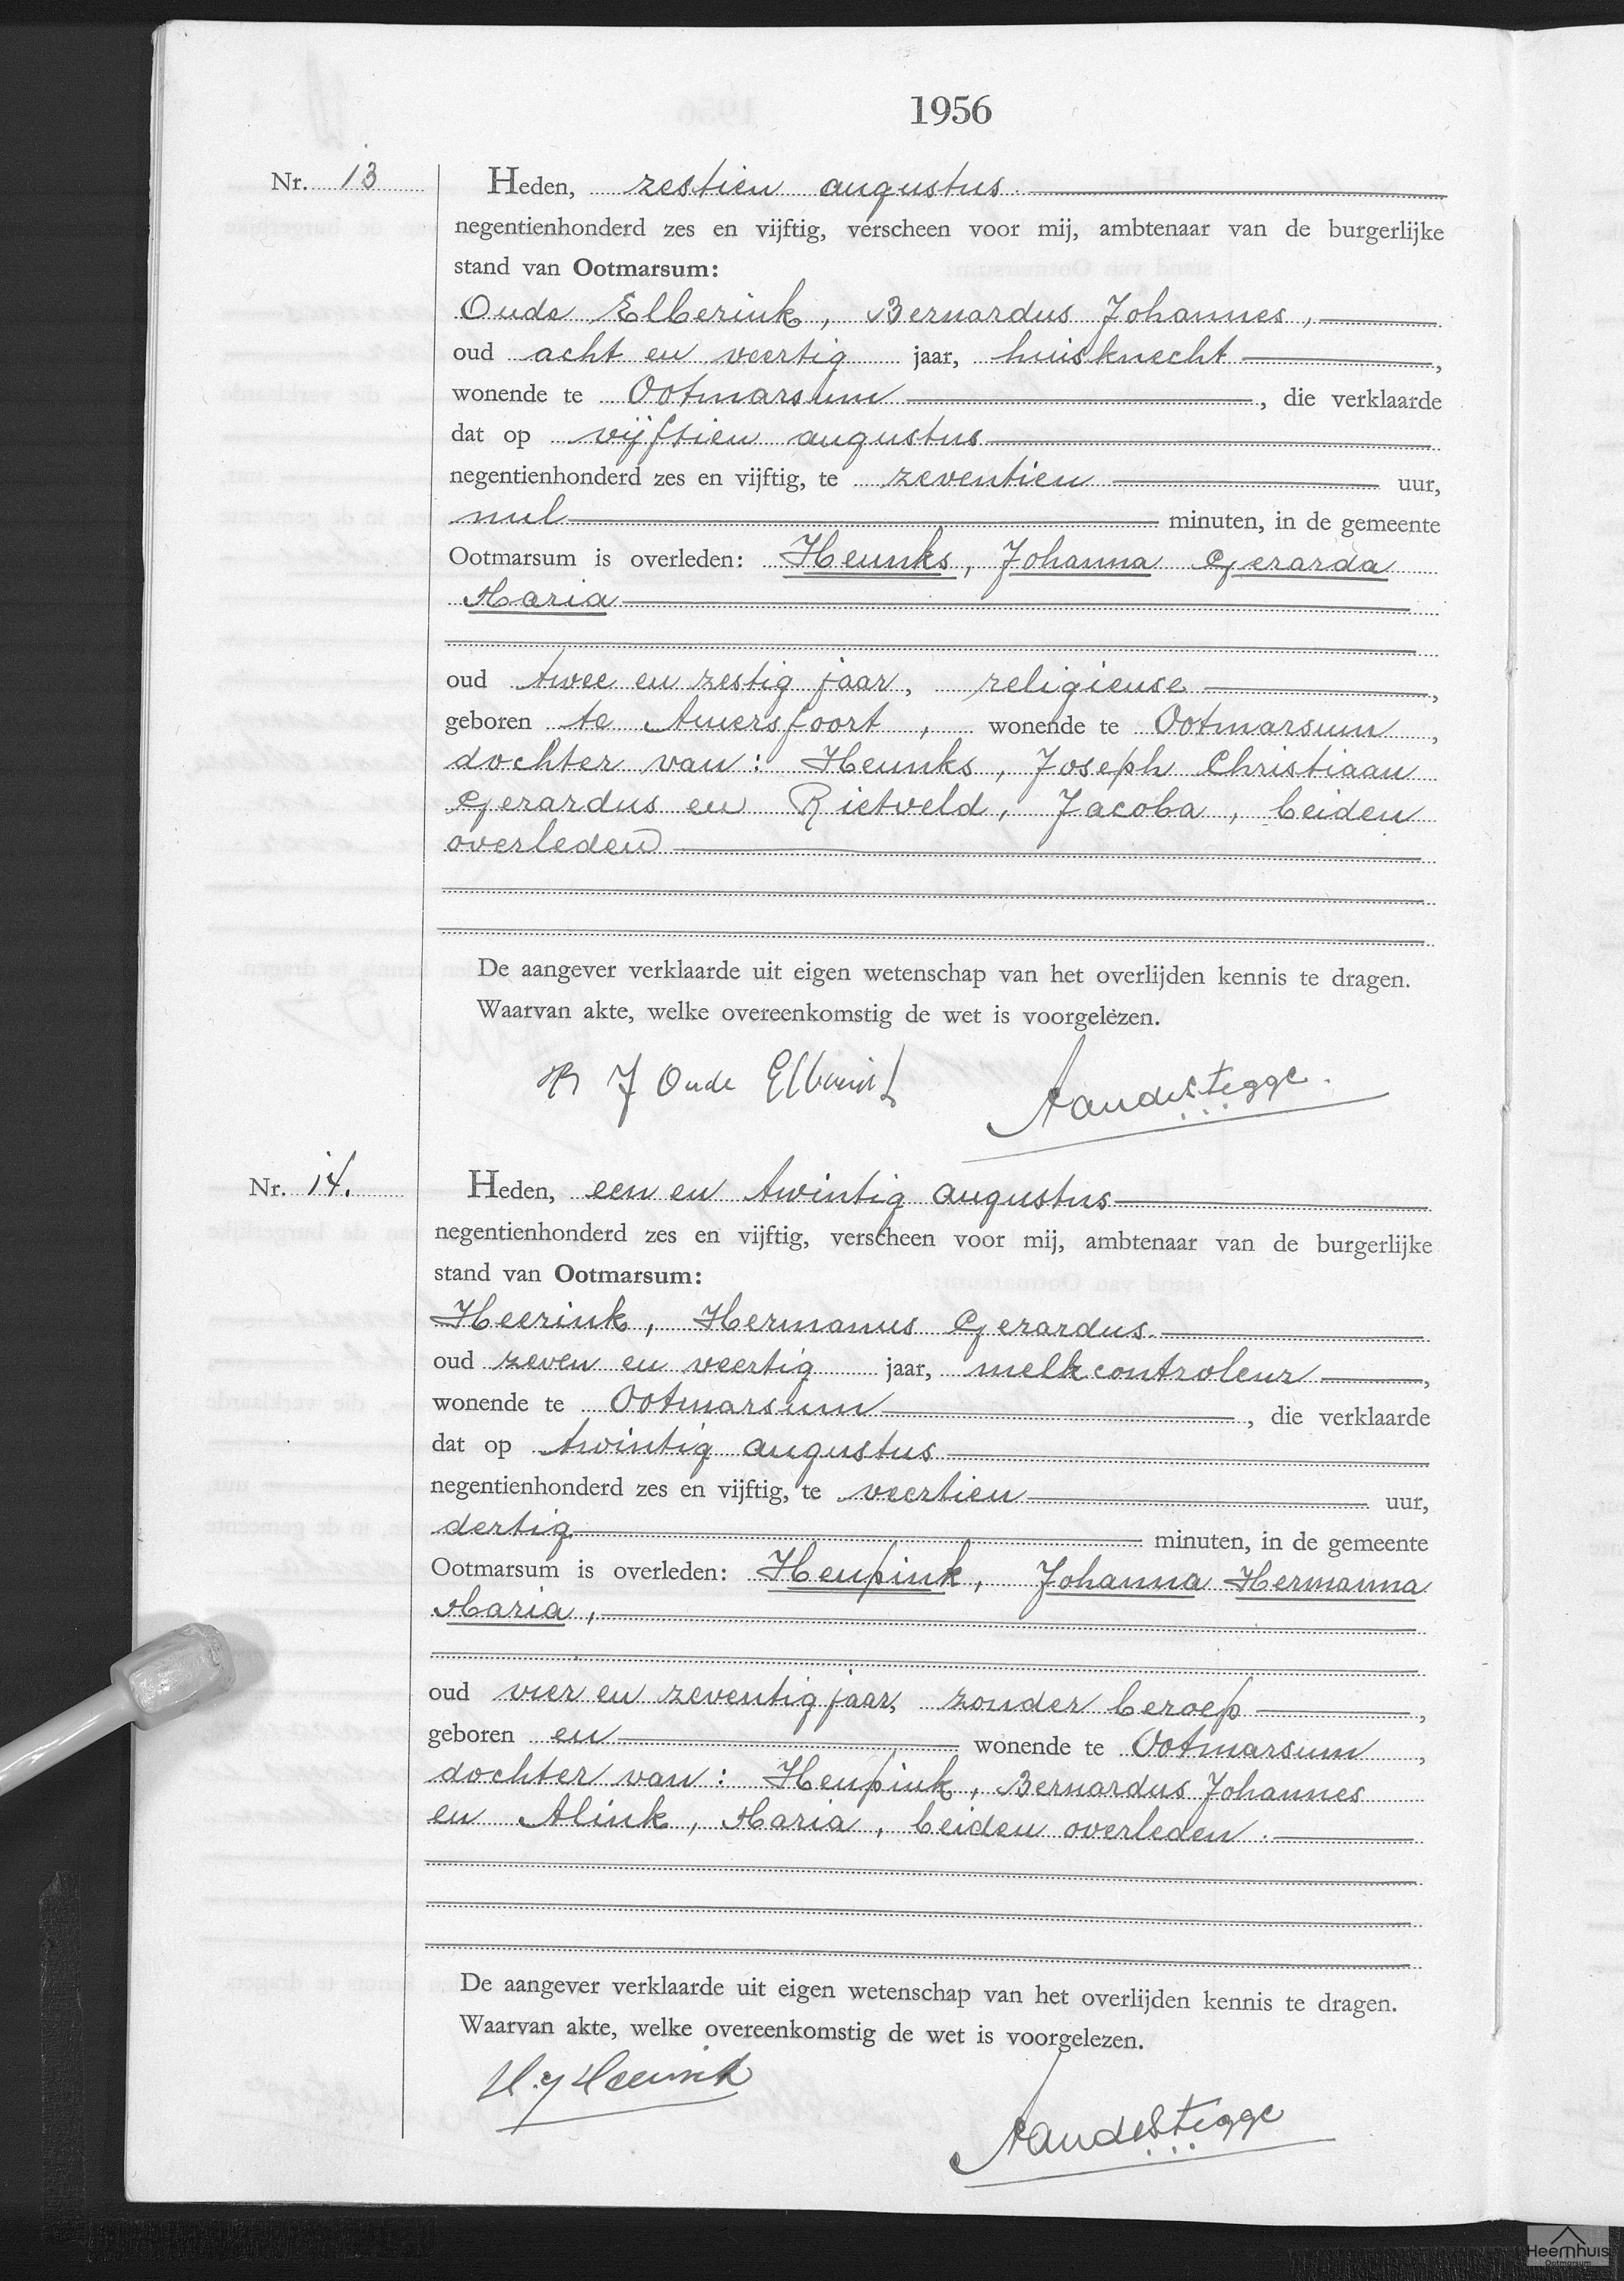 1956
Nr. 13
Heden, zestien augustus
negentienhonderd zes en vijftig, verscheen voor mij, ambtenaar van de burgerlijke
stand van Ootmarsum:
Oude Elberink, Bernardus Johannes,
oud acht en veertig jaar, huisknecht,
wonende te Ootmarsum, die verklaarde
dat op vijftien augustus
negentienhonderd zes en vijftig, te zeventien uur,
nul minuten, in de gemeente
Ootmarsum is overleden: Heunks, Johanna Gerarda
Maria
oud twee en zestig jaar, religieuse,
geboren te Amersfoort, wonende te Ootmarsum,
dochter van: Heunks, Joseph Christiaan
Gerardus en Rietveld, Jacoba, beiden
overleden
De aangever verklaarde uit eigen wetenschap van het overlijden kennis te dragen.
Waarvan akte, welke overeenkomstig de wet is voorgelezen.
B J Oude Elberink
Aandestegge.
Nr. 14.
Heden, een en twintig augustus
negentienhonderd zes en vijftig, verscheen voor mij, ambtenaar van de burgerlijke
stand van Ootmarsum:
Heerink, Hermanus Gerardus.
oud zeven en veertig jaar, melkcontroleur,
wonende te Ootmarsum, die verklaarde
dat op twintig augustus
negentienhonderd zes en vijftig, te veertien uur,
dertig minuten, in de gemeente
Ootmarsum is overleden: Heupink, Johanna Hermanna
Maria,
oud vier en zeventig jaar, zonder beroep,
geboren en wonende te Ootmarsum,
dochter van: Heupink, Bernardus Johannes
en Alink, Maria, beiden overleden.
De aangever verklaarde uit eigen wetenschap van het overlijden kennis te dragen.
Waarvan akte, welke overeenkomstig de wet is voorgelezen.
H.G Heerink
Aandestegge
Heemhuis
Ootmarsum